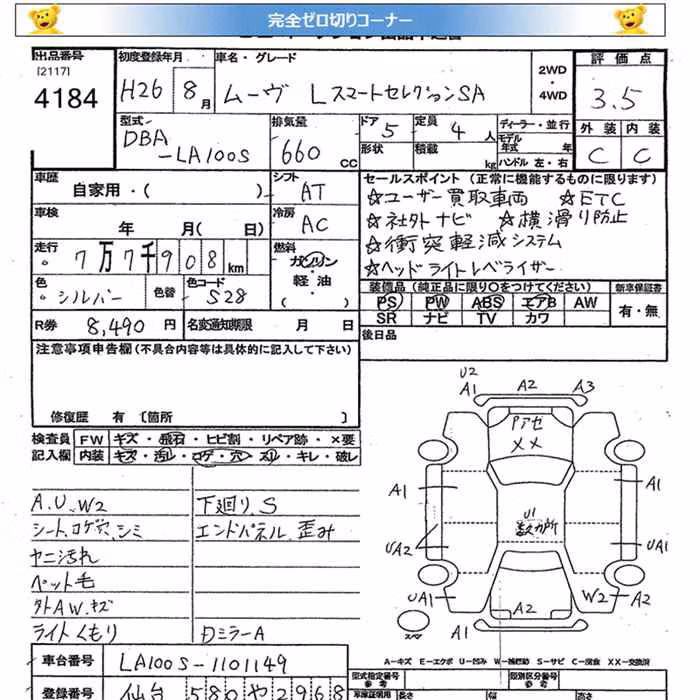 完全ゼロ切りコーナー
出品番号
[2117]
4184
初度登録年月
H26 8月
車名・グレード
ムーヴ LスマートセレクションSA
2WD
・
4WD
評価点
3.5
外装 内装
C C
型式
DBA
-LA100S
排気量
660 CC
ドア 5
定員 4 人
形状
積載 kg
ディーラー・並行
モデル年式 年
ハンドル 左・右
車歴
自家用・( )
シフト
AT
車検
年 月( 日)
冷房
AC
走行
7万7千908km
燃料
ガソリン
・
軽油
・
( )
色
シルバー
色替
色コード
S28
R券 8,490 円
名変通知期限 月 日
セールスポイント (正常に機能するものに限ります)
☆ユーザー買取車両 ☆ETC
☆社外ナビ ☆横滑り防止
☆衝突軽減システム
☆ヘッドライトレベライザー
装備品(純正品に限り○をつけてください)
PS PW ABS エアB AW
SR ナビ TV カワ
新車保証書
有・無
後日品
注意事項申告欄(不具合内容等は具体的に記入して下さい)
修復歴 有 〔箇所 〕
検査員記入欄
FW キズ・飛石・ヒビ割・リペア跡・×要
内装 キズ・汚レ・コゲ・穴・スリ・キレ・破レ
A.U.W2
シート、コゲ穴、シミ
ヤニ汚れ
ペット毛
外AW.キズ
ライトくもり
下廻り.S
エンドパネル.歪み
Dミラー A
U2
A1 A2 A3
Pアセ
××
A1 A1
U1
数カ所
UA2 UA1
UA1 W2 A2
A2
A1
スペア
A-キズ E-エクボ U-凹み W-補修跡 S-サビ C-腐食 XX-交換済
車台番号 LA100S-1101149
登録番号 仙台 580 や 2968
型式指定番号
参考
類別区分番号
参考
車庫証明用
長さ 幅 高さ